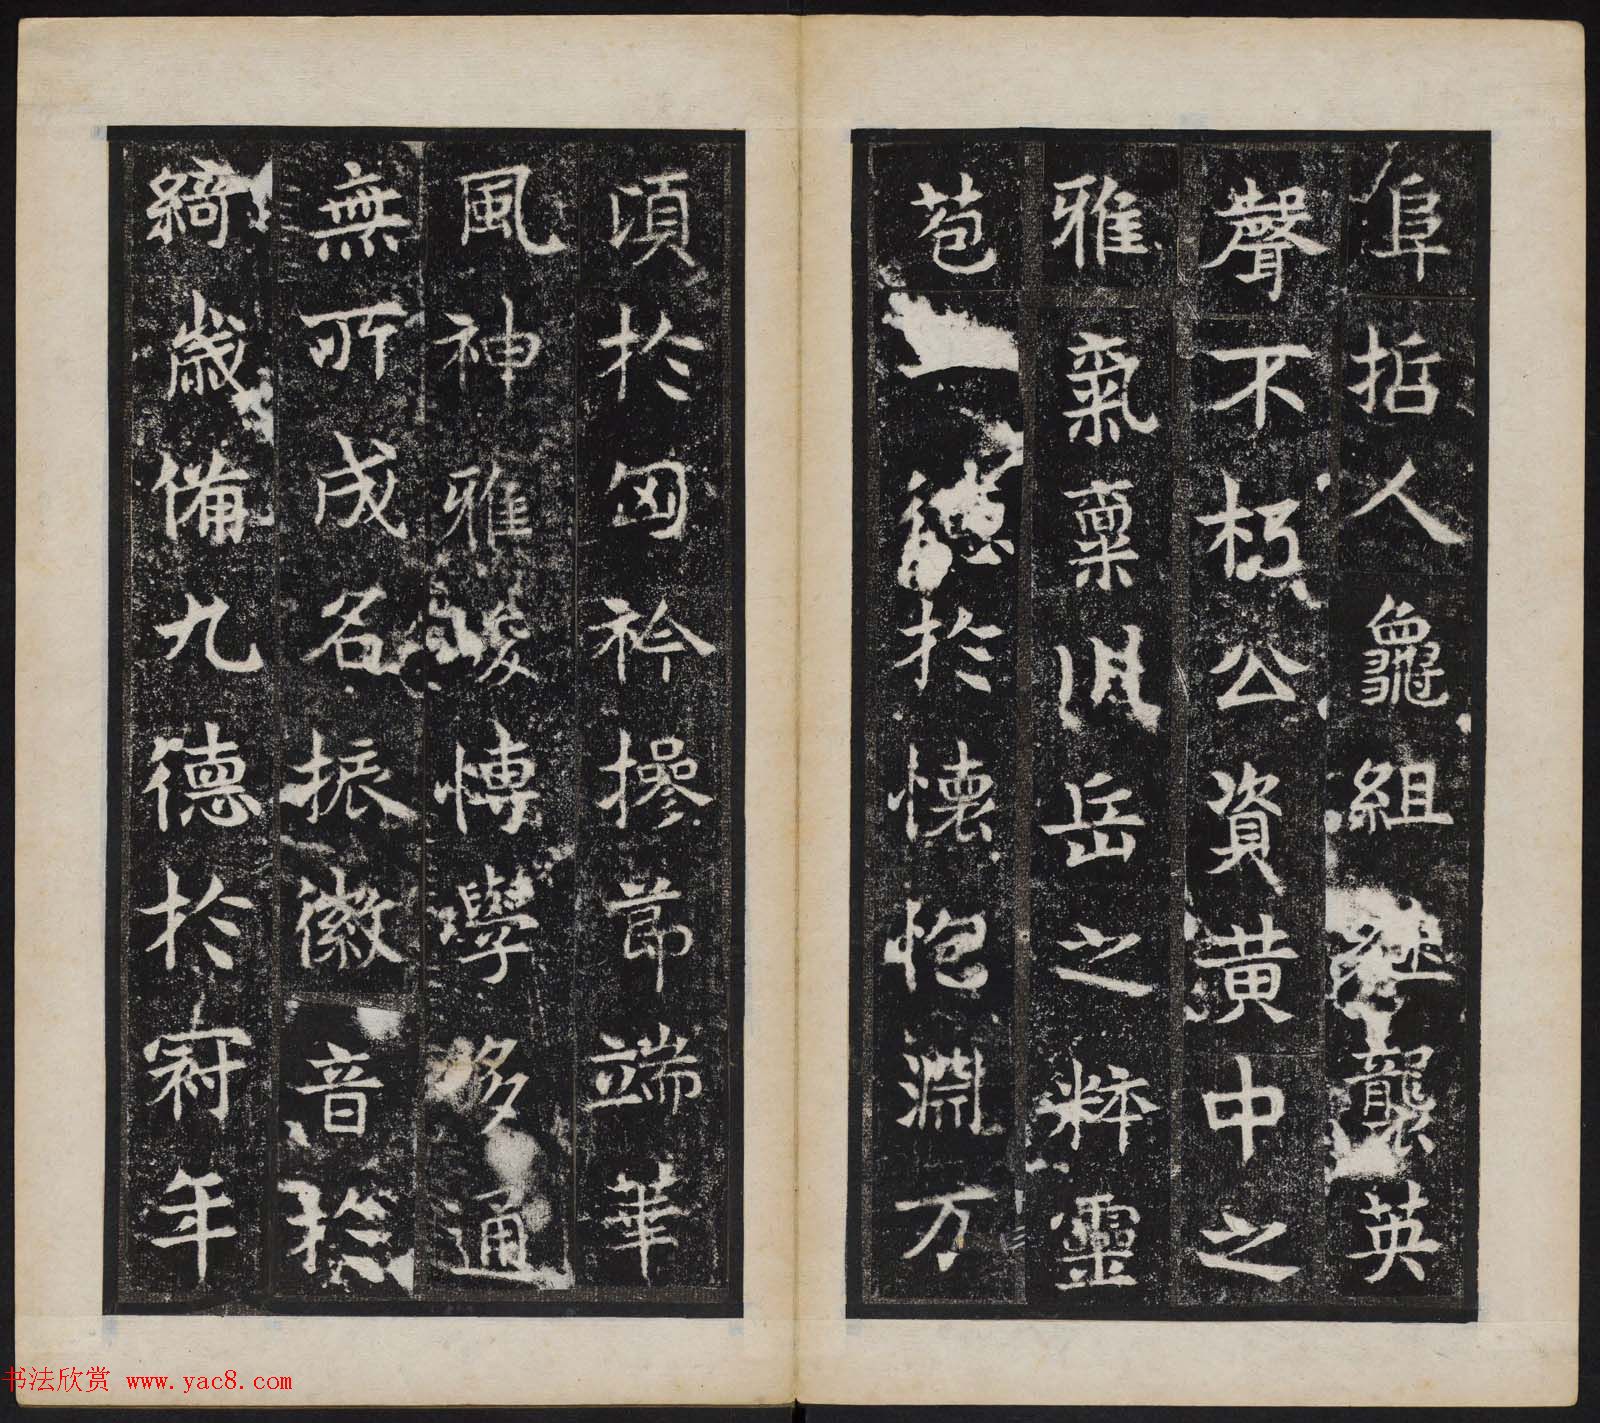 阜哲人龜組繼襲英
聲不朽公資黃中之
雅氣稟川岳之粹靈
苞德於懷抱淵万
頃於匈衿操節端華
風神雅峻博學多通
無所成名振徽音於
綺歲備九德於冠年
书法欣赏 www.yac8.com